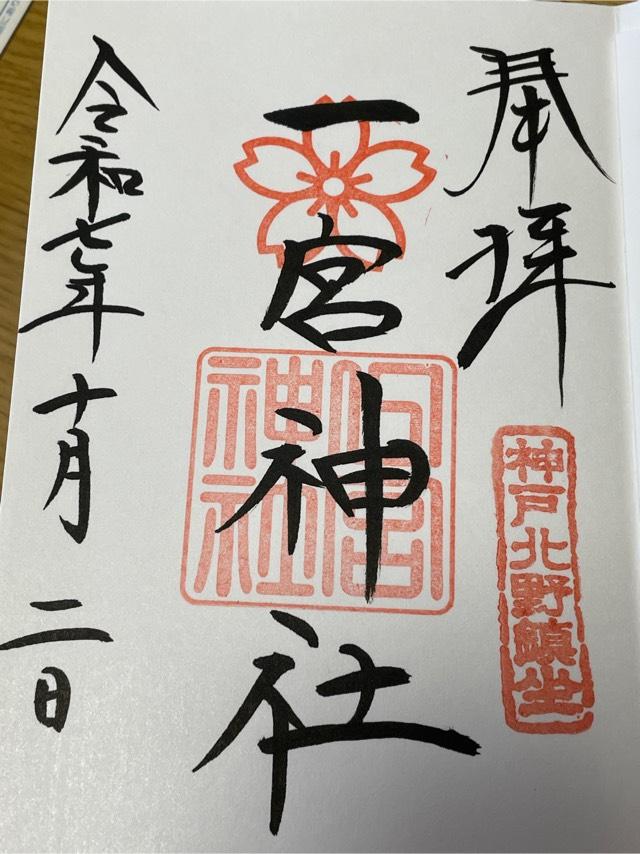 奉拝
神戸北野鎮坐
一宮神社
一宮神社
令和七年十月二日